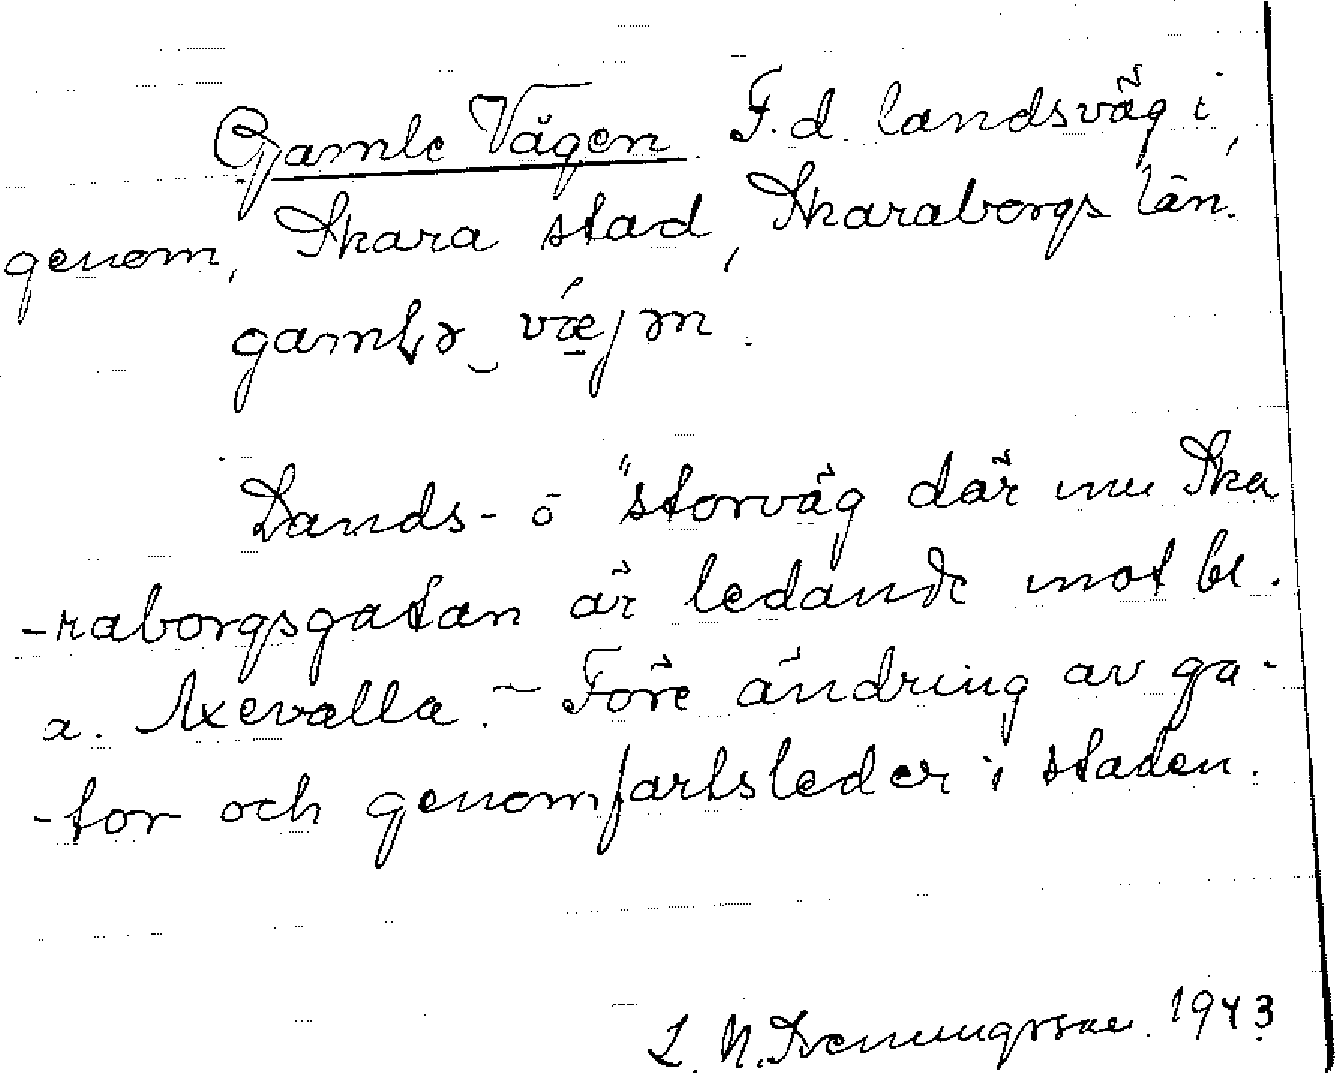 Gamle Vägen F.d. landsväg i,
genom, Skara stad, Skaraborgs län.
gamlə væjən.
Lands- o "storväg där nu Ska
-raborgsgatan är ledande mot bl.
a. Axevalla. - Före ändring av ga-
-tor och genomfartsleder i staden.
L. N. 1943